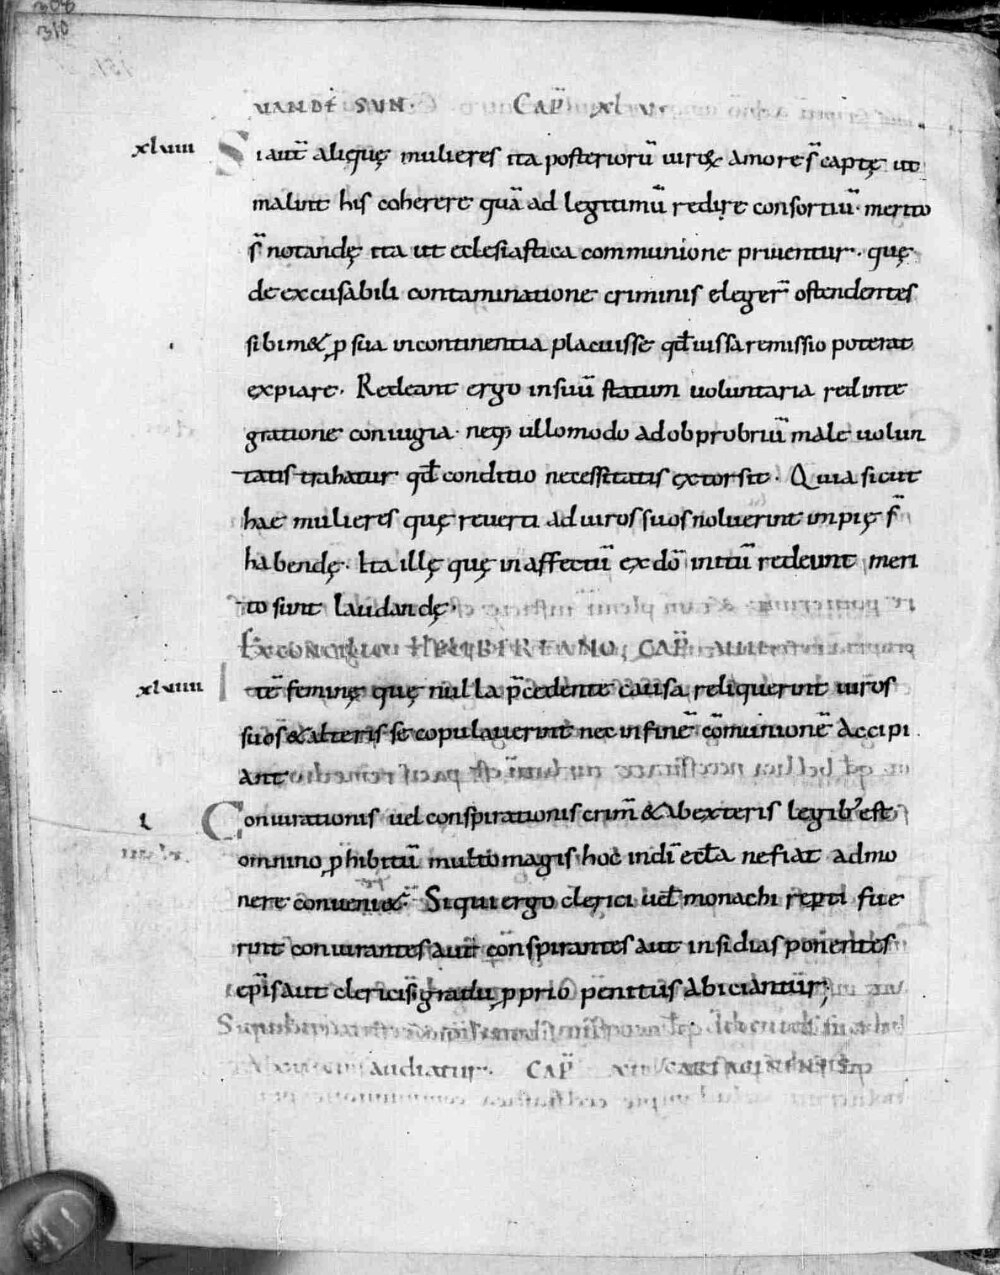 308
310
UANDE SUN. CAP̄ xlv.
xlviii Si aut̄ aliquę mulieres ita posterioru̅ uiroꝝ amore s̄ captę ut
malint his coherere qua̅ ad legitimu̅ redire consortiu̅. merito
s̄ notandę ita ut ecclesiastica communione priuentur. quę
de excusabili contaminatione criminis eleger̅ ostendentes
sibim& ꝓ sua incontinentia placuisse qd̄ iussa remissio poterat
expiare. Redeant ergo in suu̅ statum uoluntaria redinte
gratione coniugia. neq; ullo modo ad obprobriu̅ male uolun
tatis trahatur qd̄ conditio necessitatis extorsit. Quia sicut
hae mulieres quę reuerti ad uiros suos noluerint impię s̄
habendę. Ita illę quę in affectu̅ ex dō initu̅ redeunt meri
to sunt laudandę.
Ex concilio HELIBERTANO, CAP̄
xlviiii Ite̅ feminę quę nulla p̄cedente causa reliquerint uiros
suos & alteris se copulauerint nec in fine̅ co̅munione̅ accipi
ant
l Coniurationis uel conspirationis crim̄ & ab exteris legib; est
omnino ꝓhibitu̅ multo magis hoc in dī eccl̄a ne fiat admo
nere conueni&. Si qui ergo clerici uel monachi rep̄ti fue
rint coniurantes aut conspirantes aut insidias ponentes
ep̄is aut clericis gradu ꝓprio penitus abiciantur;
audiatur. CAP̄ VII CARTAGINENSIS